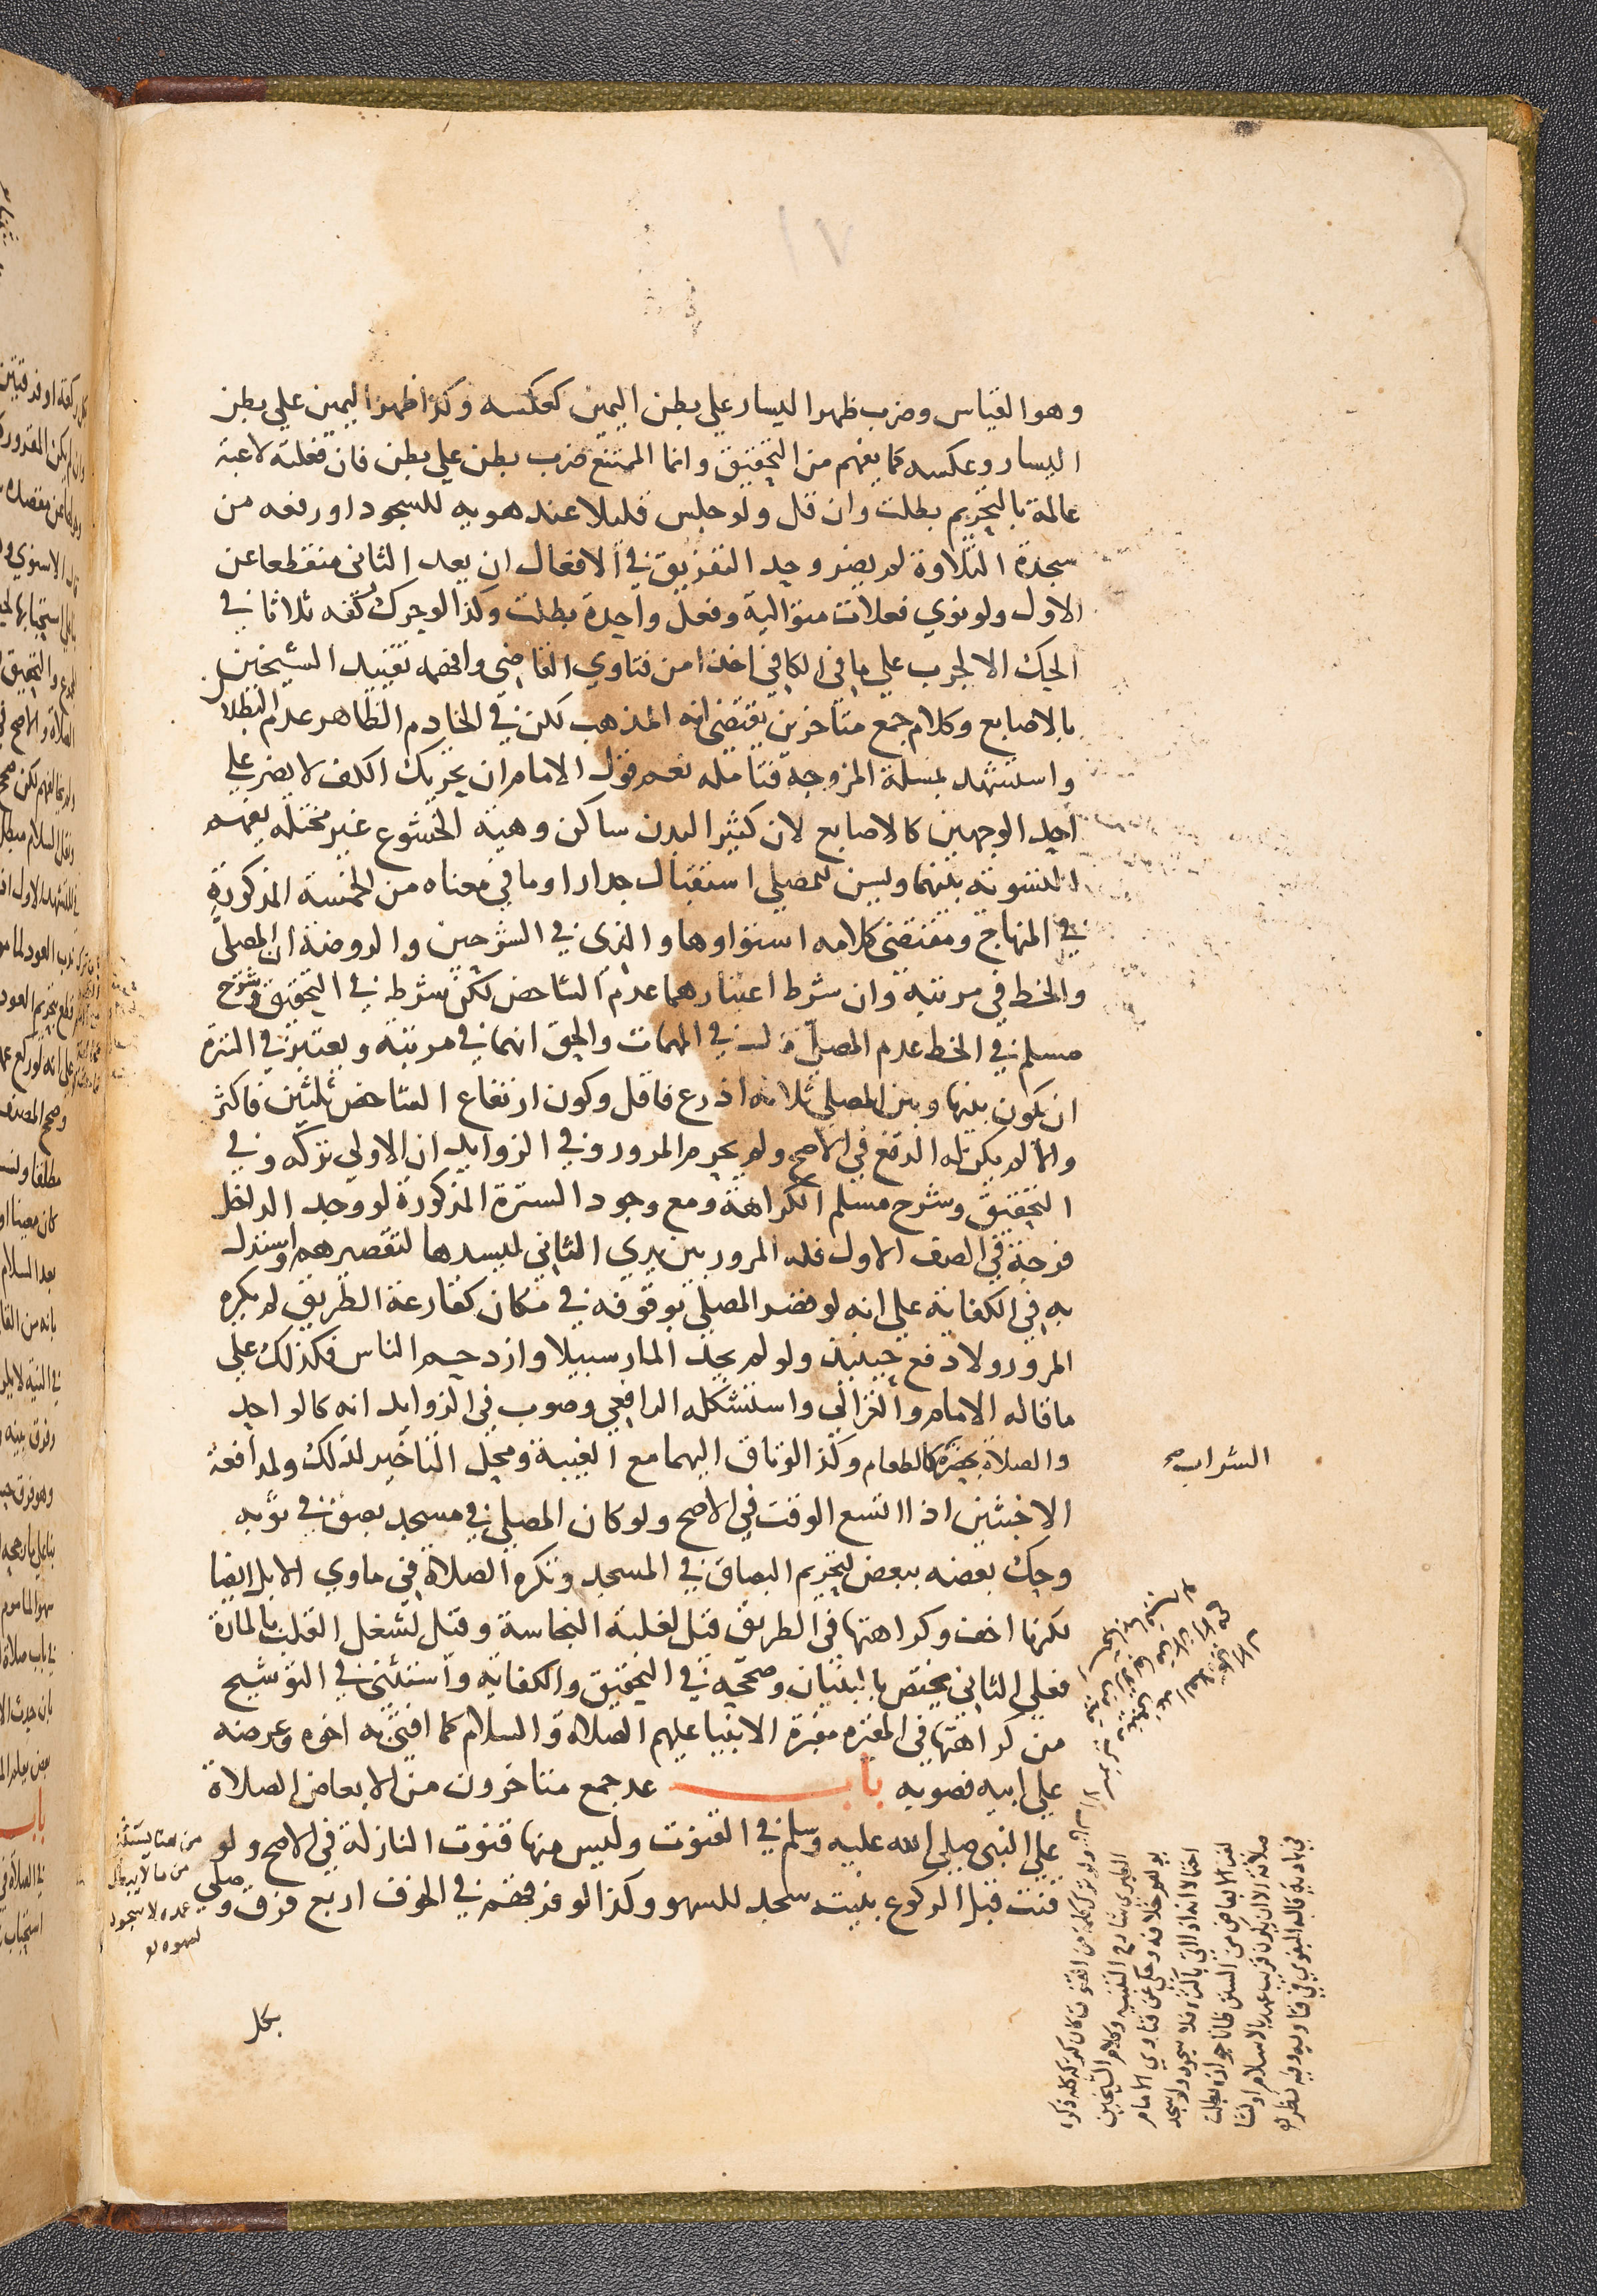 ١٧
وهو القياس وضرب ظهر اليسار علي بطن اليمين كعكسه وكذا ظهر اليمين علي بطن
اليسار وعكسه كما يفهم من التحقيق وانما الممتنع ضرب بطن علي بطن فان فعلته لاعبة
عالمة بالتحريم بطلت وان قل ولو جلس قليلا عند هويه للسجود او رفعه من
سجدة التلاوة لم يضر وحد التفريق في الافعال ان يعد الثاني منقطعا عن
الاول ولو نوي فعلات متوالية وفعل واحدة بطلت وكذا لو حرك كفه ثلاثا في
الحك الا لجرب علي ما في الكافي اخذا من فتاوي القاضي وافهمه تقييد الشيخين
بالاصابع وكلام جمع متاخرين يقتضي انه المذهب لكن في الخادم الظاهر عدم البطلان
واستشهد بمسلة المزوجة فتامله نعم قول الامام ان تحريك الكف لا يضر علي
احد الوجهين كالاصابع لان كثير البدن ساكن وهيئة الخشوع غير مختلة يفهم
التسوية بينهما ويسن للمصلي استقبال جدار او ما في معناه من الخمسة المذكورة
في المنهاج ومقتضي كلامه استواوها والذي في الشرحين والروضة ان المصلي
والخط في مرتبة وان شرط اعتبارهما عدم الشاخص لكن شرط في التحقيق وشرح
مسلم في الخط عدم المصلي قلت في المهمات والحق انهما في مرتبة ويعتبر في السترة
ان يكون بينها وبين المصلي ثلاثة اذرع فاقل وكون ارتفاع الشاخص ثلثين فاكثر
والا لم يكن له الدفع في الاصح ولم يحرم المرور وفي الزوايد ان الاولي تركه وفي
التحقيق وشرح مسلم الكراهة ومع وجود السترة المذكورة لو وجد الداخل
فرجة في الصف الاول فله المرور بين يدي الثاني ليسدها لتقصيرهم واستدل
به في الكفاية علي انه لو قصر المصلي بوقوفه في مكان كقارعة الطريق لم يكره
المرور ولا دفع حينئذ ولو لم يجد المار سبيلا وازدحم الناس فكذلك علي
ما قاله الامام والغزالي واستشكله الرافعي وصوب في الزوايد انه كالواحد
والصلاة بحضرة كالطعام وكذا لو تاق اليهما مع الغيبة ومحل التاخير لذلك ولمدافعة
الشراب صح
الاخبثين اذا اتسع الوقت في الاصح ولو كان المصلي في مسجد بصق في ثوبه
وحك بعضه ببعض لتحريم البصاق في المسجد وتكره الصلاة في ماوي الابل ايضا
لكنها اخف وكراهتها في الطريق قيل لغلبة النجاسة وقيل لشغل القلب بالمارة
فعلي الثاني يختص بالبنيان وصححه في التحقيق والكفاية واستثني في التوشيح
من كراهتها في المقبرة مقبرة الانبيا عليهم الصلاة والسلام كما افتي به اخوه وعرضه
علي ابيه فصوبه باب عد جمع متاخرون من الابعاض الصلاة
علي النبي صلي الله عليه وسلم في القنوت وليس منها قنوت النازلة في الاصح ولو
قنت قبل الركوع بنيته سجد للسهو وكذا لو فرقهم في الخوف اربع فرق وصلي
من هنا يستثني
من ما لا يبطل
عمده لا سجود
لسهوه
بكل
ولو ترك كلمة من القنوت كان كتركه كله ذكره
الطبري شارح التنبيه وكلام الشيخين
يوهم خلافه وحكي عن فتاوي الامام
احتمالا انه اذا اتي باكثره فلا سجود ولو سجد
لغير الابعاض من السنن ظانا جوازه بطلت
صلاته الا ان يكون قريب عهد بالاسلام او نشا
في بادية قاله البغوي في فتاويه وفيه نظر